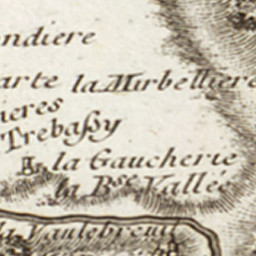 ondiere
arte la Mirbelliere
ieres
Trebassy
la Gaucherie
la Bse Vallée
Vaulebreuil